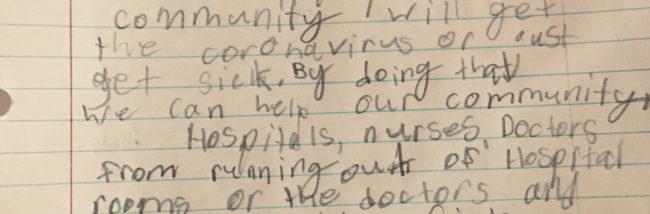 community I will get
the coronavirus or just
get sick. By doing that
we can help our community,
Hospitals, nurses, Doctors
from running out of Hospital
rooms or the doctors and